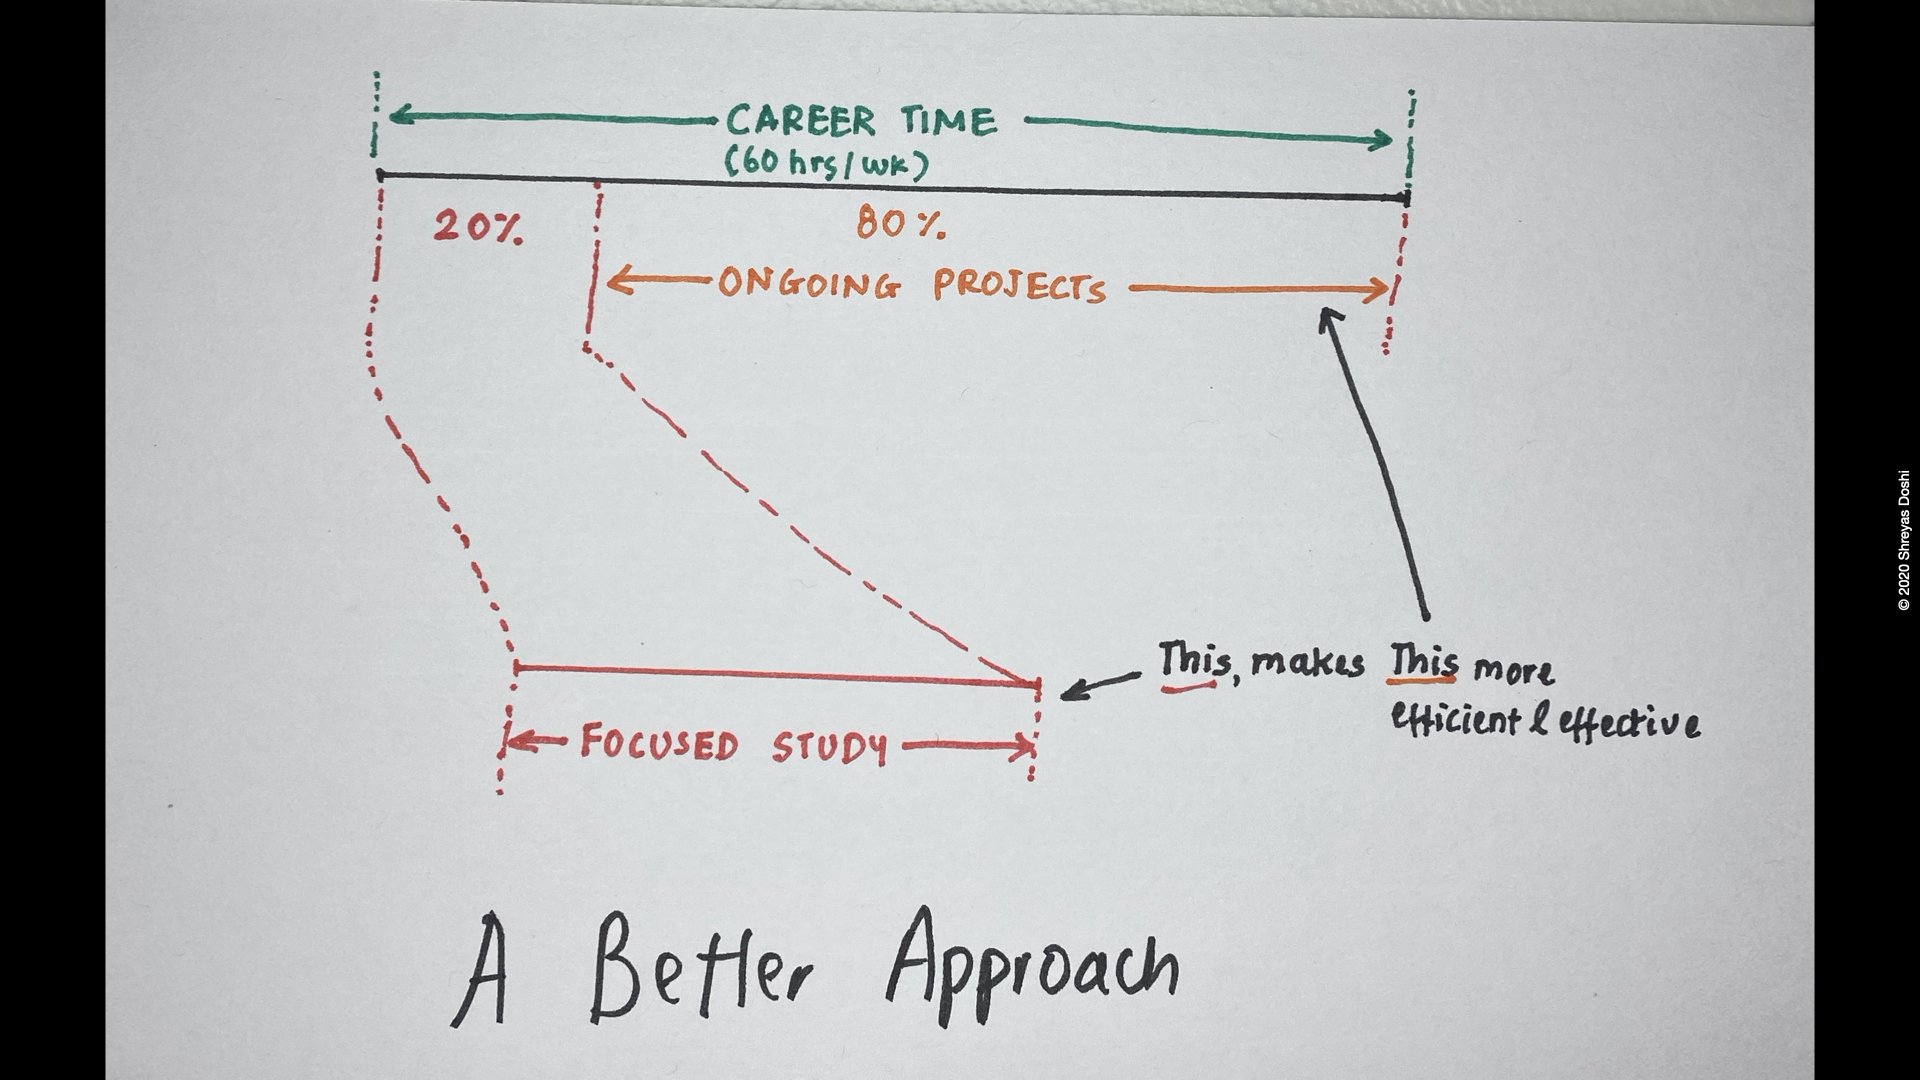 CAREER TIME
(60 hrs/wk)
20%
80%
ONGOING PROJECTS
This, makes This more
efficient & effective
FOCUSED STUDY
A Better Approach
© 2020 Shreyas Doshi